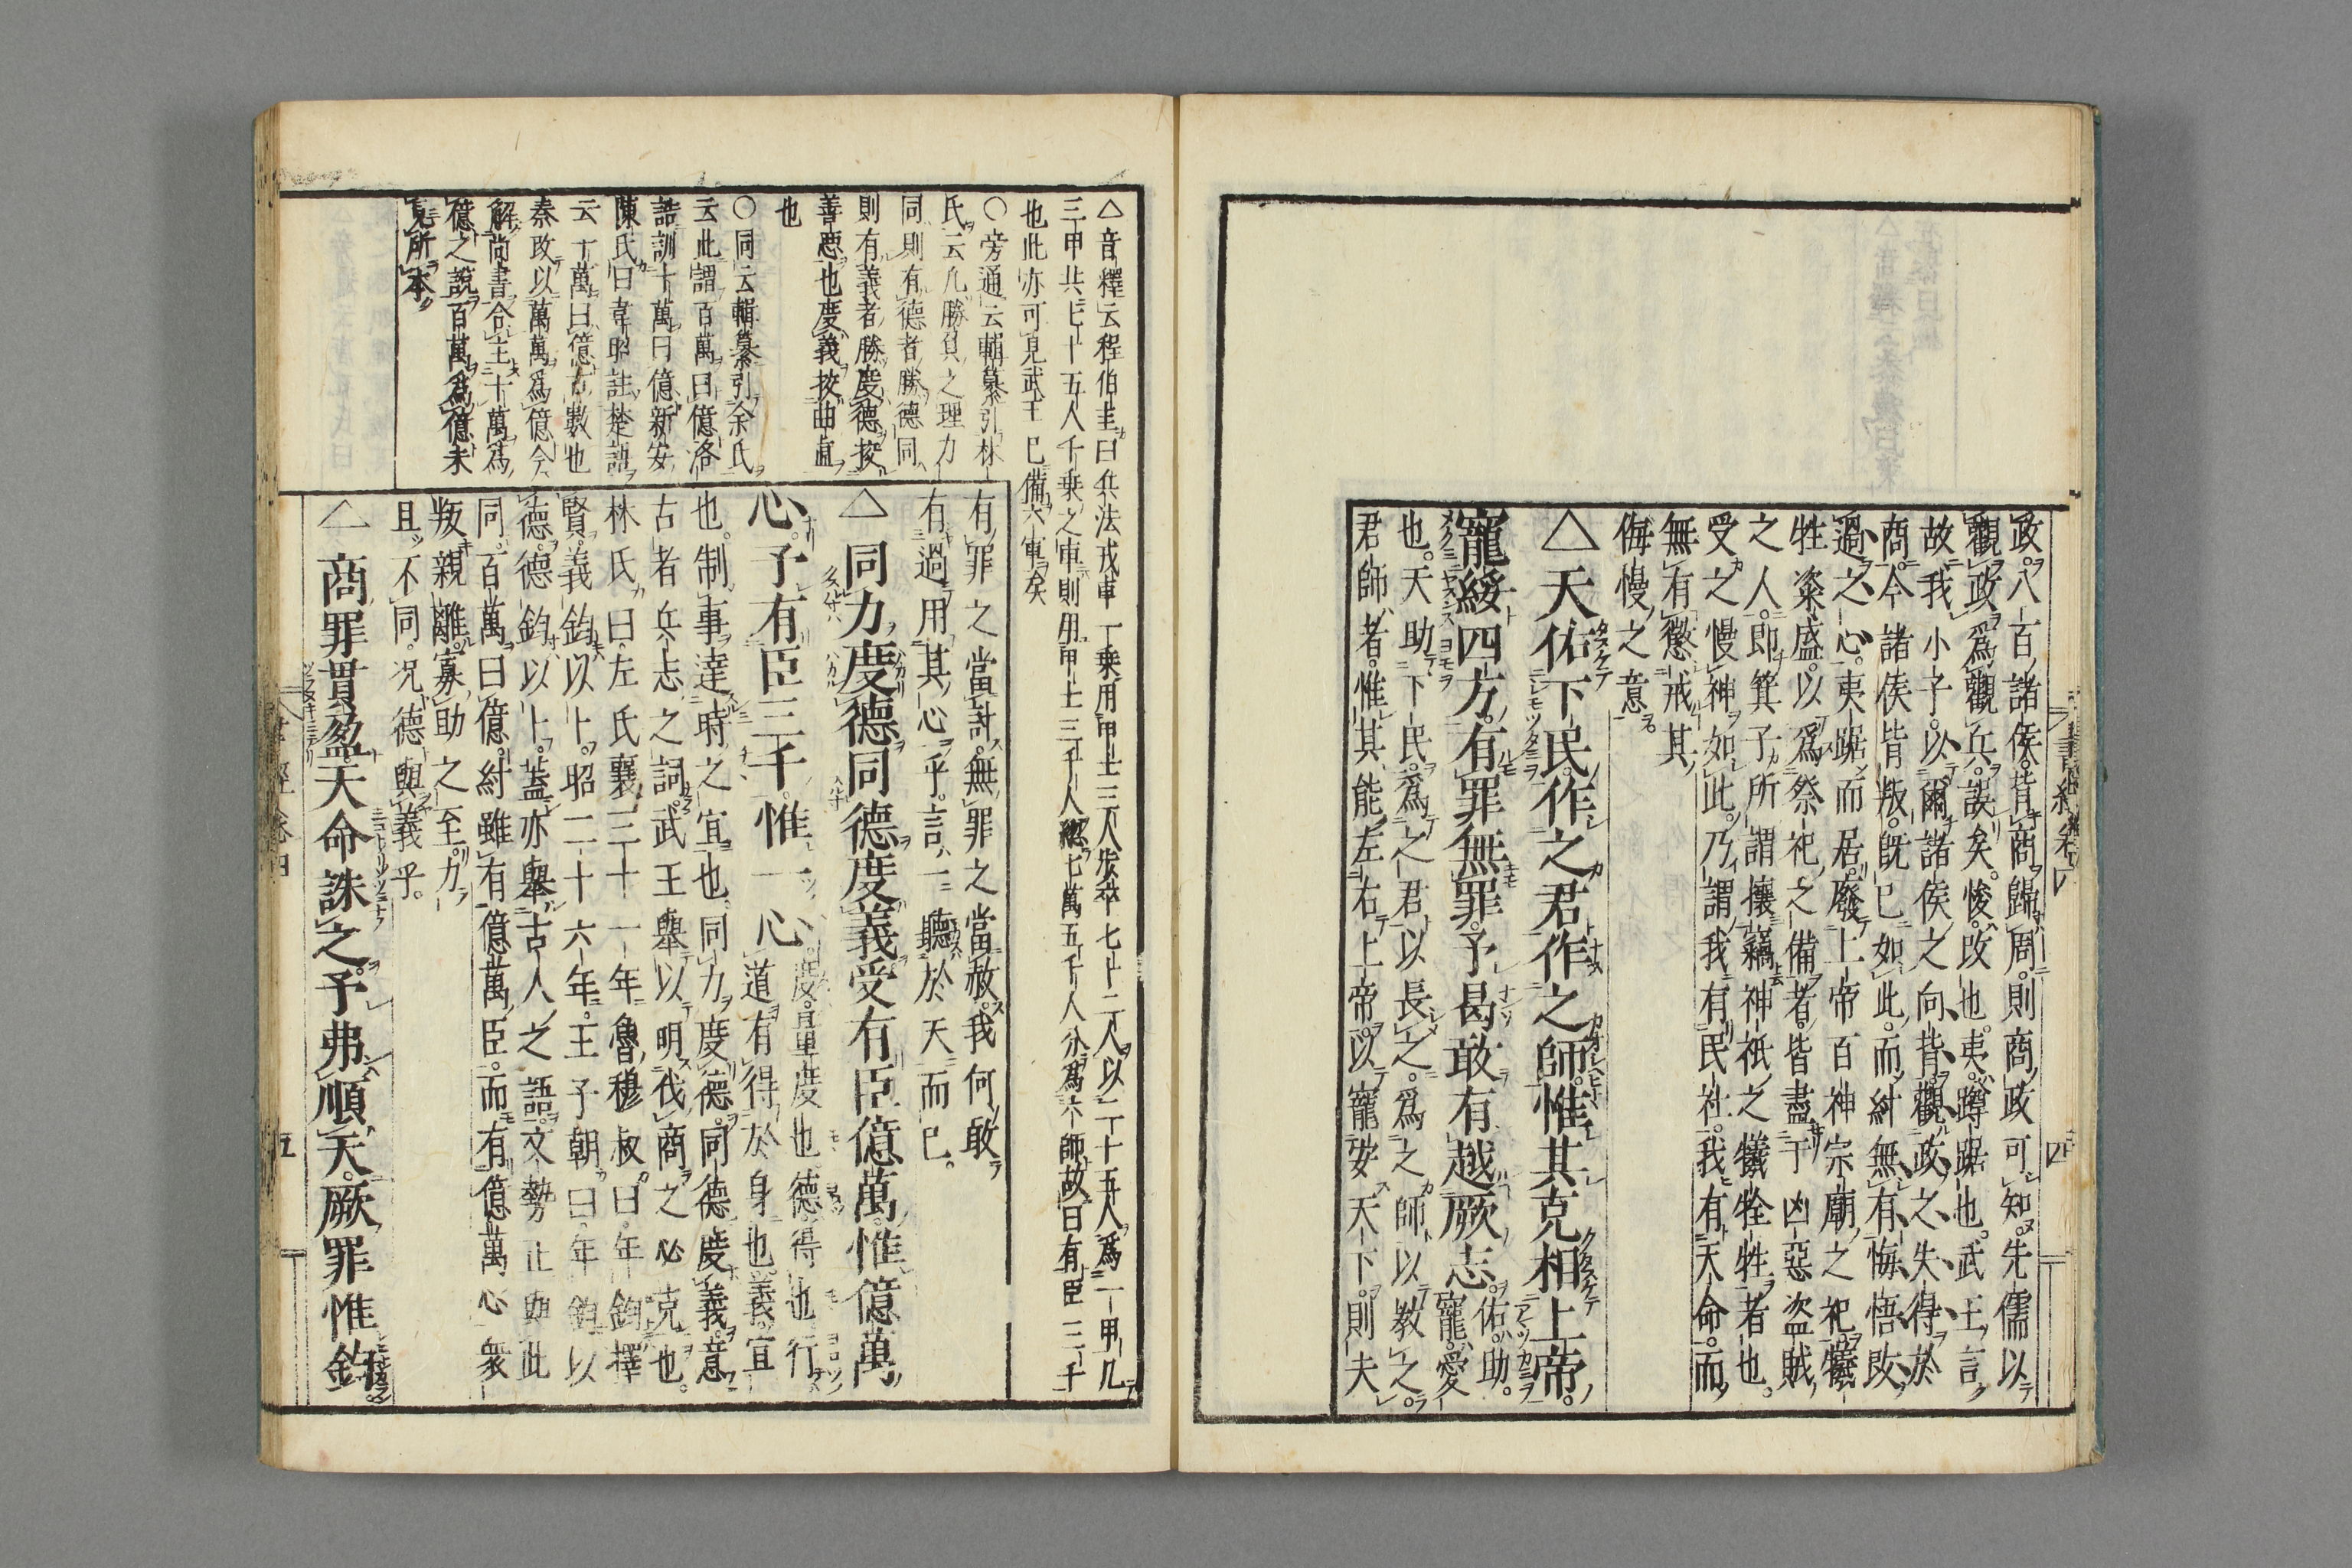 政八百諸侯皆商歸周則商政可知先儒以
觀政爲觀兵誤矣悛改也夷蹲踞也武王言
故我小子以爾諸侯之向背觀政之失得於
商今諸侯皆叛既已如此而紂無有悔悟改
過之心夷踞而居廢上帝百神宗廟之祀犧
牲粢盛以爲祭祀之備者皆盡于凶惡盜賊
之人即箕子所謂攘竊神祇之犧牷牲者也
受之慢神如此乃謂我有民社我有天命而
無有懲戒其
侮慢之意
△天佑下民作之君作之師惟其克相上帝
寵綏四方有罪無罪予曷敢有越厥志佑助寵愛
也天助下民爲之君以長之爲之師以教之
君師者惟其能左右上帝以寵安天下則夫
△音釋云程伯圭曰兵法戎車一乗用甲士三人歩卒七十二人以二十五人爲一甲凡
三甲共七十五人千乗之車則用甲士三千人總七萬五千人分爲六師故曰有臣三千
也此亦可見武王已備六軍矣
○旁通云輯纂引林
氏云凡勝負之理力
同則有德者勝德同
則有義者勝度德挍
善惡也度義挍曲直
也
○同云輯纂引余氏
云此謂百萬曰億洛
誥訓十萬曰億新安
陳氏曰韋昭註楚語
云十萬曰億古數也
秦改以萬萬爲億今
解尚書合主十萬爲
億之說百萬爲億未
見所本
有罪之當討無罪之當赦我何敢
有過用其心乎言一聽於天而已
△同力度德同德度義受有臣億萬惟億萬
心予有臣三千惟一心度量度也德得也行
道有得於身也義宜
也制事達時之宜也同力度德同德度義意
古者兵志之詞武王舉以明伐商之必克也
林氏曰左氏襄三十一年魯穆叔曰年鈞擇
賢義鈞以卜昭二十六年王子朝曰年鈞以
德德鈞以卜蓋亦舉古人之語文勢正與此
同百萬曰億紂雖有億萬臣而有億萬心衆
叛親離寡助之至力
且不同况德與義乎
△商罪貫盈天命誅之予弗順天厥罪惟鈞